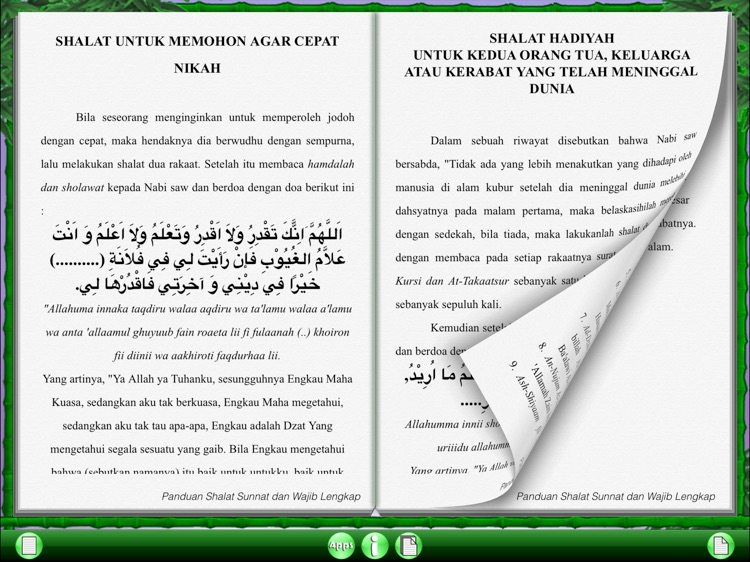 SHALAT UNTUK MEMOHON AGAR CEPAT
NIKAH
Bila seseorang menginginkan untuk memperoleh jodoh
dengan cepat, maka hendaknya dia berwudhu dengan sempurna,
lalu melakukan shalat dua rakaat. Setelah itu membaca hamdalah
dan sholawat kepada Nabi saw dan berdoa dengan doa berikut ini
:
اَللَّهُمَّ اِنَّكَ تَقْدِرُ وَلاَ اَقْدِرُ وَتَعْلَمُ وَلاَ اَعْلَمُ وَ اَنْتَ
عَلاَّمُ الغُيُوْبِ فَاِنْ رَاَيْتَ لِي فِي فُلاَنَةِ (..........)
خَيْرًا فِي دِيْنِي وَ آخِرَتِي فَاقْدُرْهَا لِي.
"Allahuma innaka taqdiru walaa aqdiru wa ta'lamu walaa a'lamu
wa anta 'allaamul ghuyuub fain roaeta lii fi fulaanah (..) khoiron
fii diinii wa aakhiroti faqdurhaa lii.
Yang artinya, "Ya Allah ya Tuhanku, sesungguhnya Engkau Maha
Kuasa, sedangkan aku tak berkuasa, Engkau Maha megetahui,
sedangkan aku tak tau apa-apa, Engkau adalah Dzat Yang
mengetahui segala sesuatu yang gaib. Bila Engkau mengetahui
bahwa (sebutkan namanya) itu baik untuk untukku, baik untuk
Panduan Shalat Sunnat dan Wajib Lengkap
SHALAT HADIYAH
UNTUK KEDUA ORANG TUA, KELUARGA
ATAU KERABAT YANG TELAH MENINGGAL
DUNIA
Dalam sebuah riwayat disebutkan bahwa Nabi saw
bersabda, "Tidak ada yang lebih menakutkan yang dihadapi oleh
manusia di alam kubur setelah dia meninggal dunia melebihi
dahsyatnya pada malam pertama, maka belaskasihilah
dengan sedekah, bila tiada, maka lakukanlah shalat
dengan membaca pada setiap rakaatnya
Kursi dan At-Takaatsur sebanyak
sebanyak sepuluh kali.
Kemudian
dan berdoa
مَا اُرِيْدُ,
Allahumma innii
uriiidu
Yang artinya, "Ya Allah
7.
8. An-Nujum
9. Ash-Shiyaam
Panduan Shalat Sunnat dan Wajib Lengkap
Apps